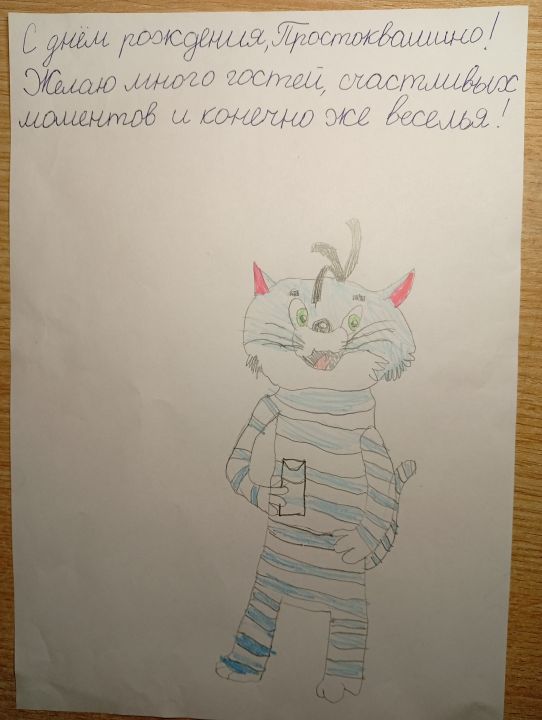 С днём рождения, Простоквашино!
Желаю много гостей, счастливых
моментов и конечно же веселья!